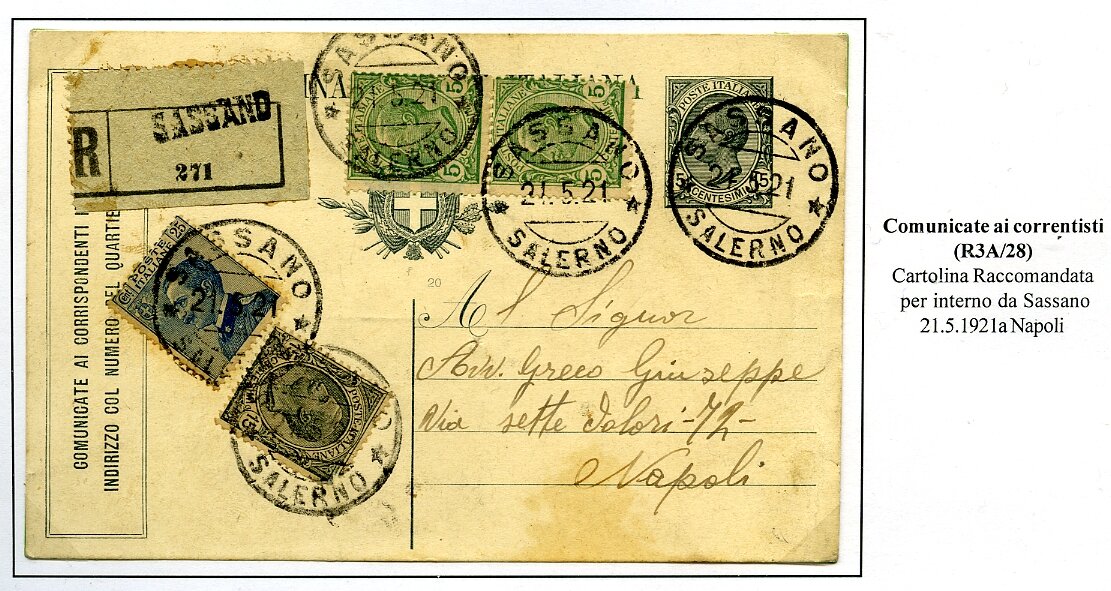 SASSANO
21.5.21
SALERNO
INA
ITALIANA
R
SASSANO
271
5
POSTE ITALIANE
5
SASSANO
21.5.21
SALERNO
POSTE ITALIANE
15 CENTESIMI 15
SASSANO
21.5.21
SALERNO
COMUNICATE AI CORRISPONDENTI
INDIRIZZO COL NUMERO DEL QUARTIE
25
POSTE ITALIANE
SASSANO
21.5.21
SAL
POSTE ITALIANE
CENTESIMI 15
SALERNO
20
Al Signor
Avv. Greco Giuseppe
Via sette dolori-72-
Napoli
Comunicate ai correntisti
(R3A/28)
Cartolina Raccomandata
per interno da Sassano
21.5.1921a Napoli